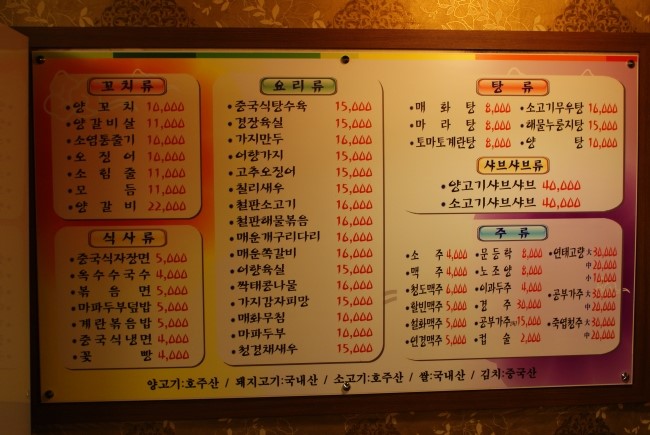 꼬치류
양꼬치 10,000
양갈비살 11,000
소염통줄기 10,000
오징어 10,000
소힘줄 11,000
모듬 11,000
양갈비 22,000
식사류
중국식자장면 5,000
옥수수국수 4,000
볶음면 5,000
마파두부덮밥 5,000
계란볶음밥 5,000
중국식냉면 4,000
꽃빵 4,000
요리류
중국식탕수육 15,000
경장육실 15,000
가지만두 16,000
어향가지 15,000
고추오징어 15,000
칠리새우 15,000
철판소고기 16,000
철판해물볶음 16,000
매운개구리다리 16,000
매운쪽갈비 16,000
어향육실 15,000
짝태콩나물 16,000
가지감자피망 15,000
매화무침 10,000
마파두부 10,000
청경채새우 15,000
탕류
매화탕 8,000
마라탕 8,000
토마토계란탕 8,000
소고기무우탕 16,000
해물누룽지탕 15,000
양탕 10,000
샤브샤브류
양고기샤브샤브 40,000
소고기샤브샤브 40,000
주류
소주 4,000
맥주 4,000
청도맥주 6,000
할빈맥주 5,000
설화맥주 5,000
연경맥주 5,000
문등학 8,000
노조양 8,000
이과두주 4,000
경주 30,000
공부가주(小) 15,000
컵술 2,000
연태고량 大 30,000
中 20,000
小 10,000
공부가주 大 30,000
中 20,000
죽엽청주 大 30,000
中 20,000
양고기:호주산 / 돼지고기:국내산 / 소고기:호주산 / 쌀:국내산 / 김치:중국산